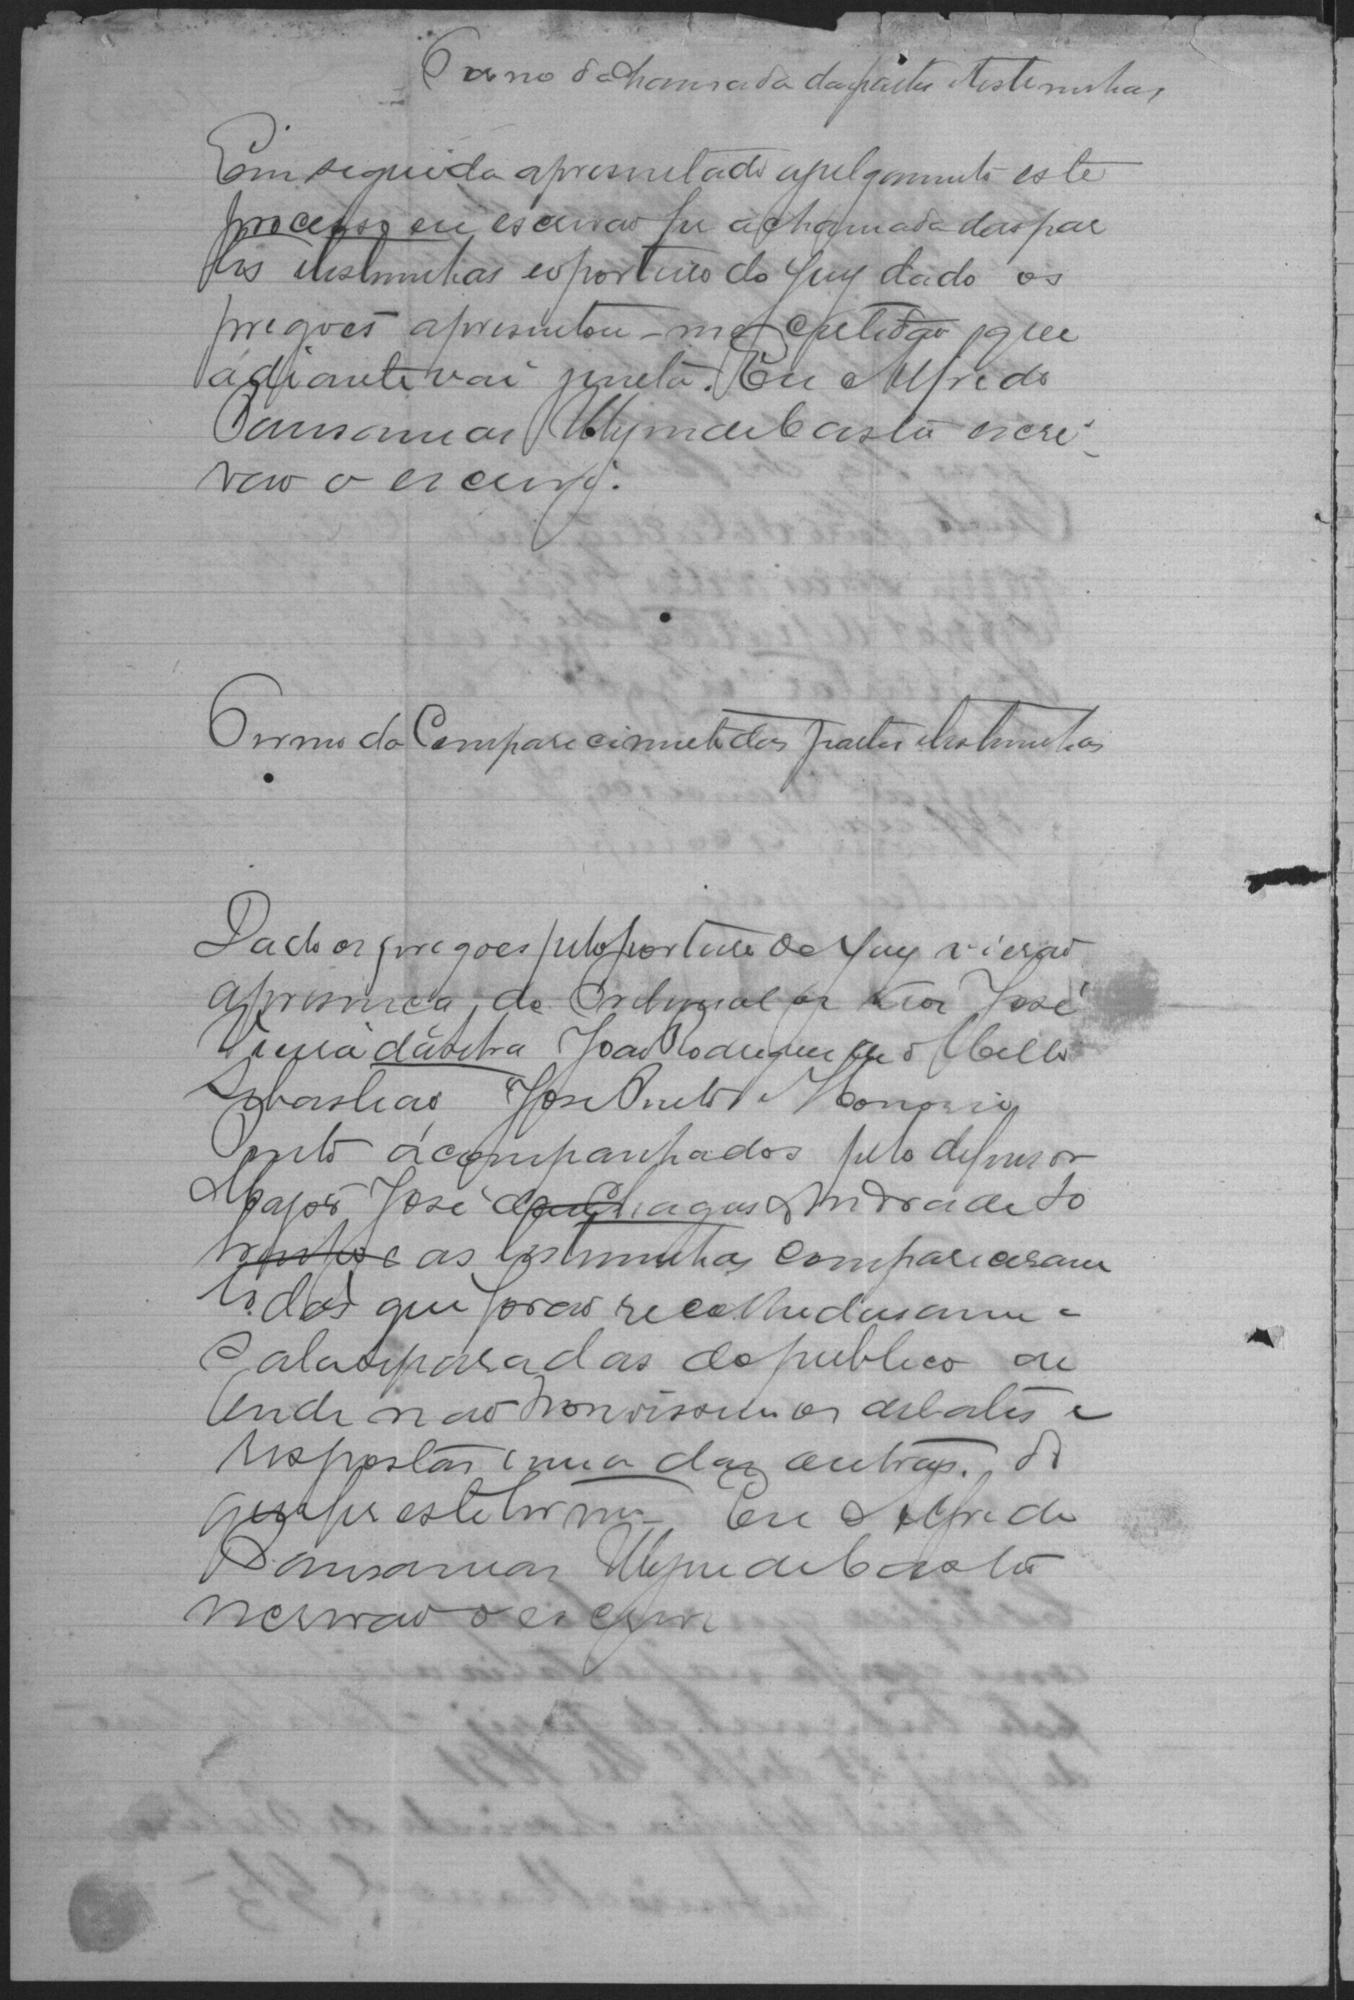 Termo da chamada das partes e testemunhas
Em seguida apresentado a julgamento este
processo eu escrivão fiz a chamada das par
tes e testemunhas e o porteiro do Jury dado os
pregoes apresentou-me certidão que
adiante vai junta. Eu Alfredo
Pausanias de Castro escri-
vão o escrevi.
Termo do Comparecimento das partes e testemunhas
Dado os pregoes pelo porteiro do Jury vierão
a presença do Tribunal os Reos José
Vieira Joao Rodrigues de Mello
Sebastião José Pinto e Honorio
Pinto acompanhados pelo defensor
Major José das Chagas Andrade
as testemunhas compareceram
todas que forão recolhidas a uma
sala separadas do publico de
onde não ouvissem os debates e
respostas umas das outras. Do
que fiz este termo Eu Alfredo
Pausanias de Castro
escrivão o escrevi